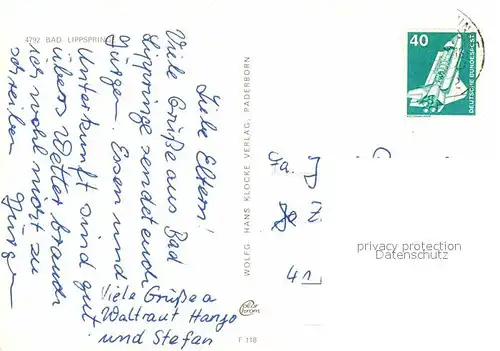 4792 BAD LIPPSPRINGE
Liebe Eltern!
Viele Grüße aus Bad
Lippringe sendet euch
Jürgen. Essen und
Unterkunft sind gut
übers Wetter brauch
ich wohl nicht zu
schreiben Jürgen
Viele Grüße a
Waltraut Hanjo
und Stefan
WOLFG. HANS KLOCKE VERLAG, PADERBORN
F 118
40
DEUTSCHE BUNDESPOST
Fa.
Z
41
privacy protection
Datenschutz